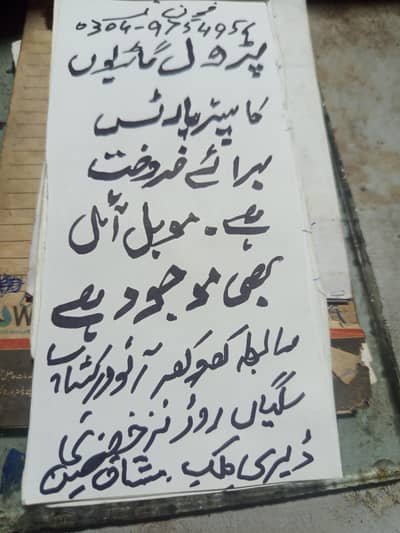 فون نمبر
0304-9754954
پٹرول گاڑیوں
کا سپیر پارٹس
برائے فروخت
ہے۔ موبل آئل
بھی موجود ہے
رابطہ کھوکھر آٹو ورکشاپ
سگیاں روڈ نزد
ڈیری ملک مشتاق حسین